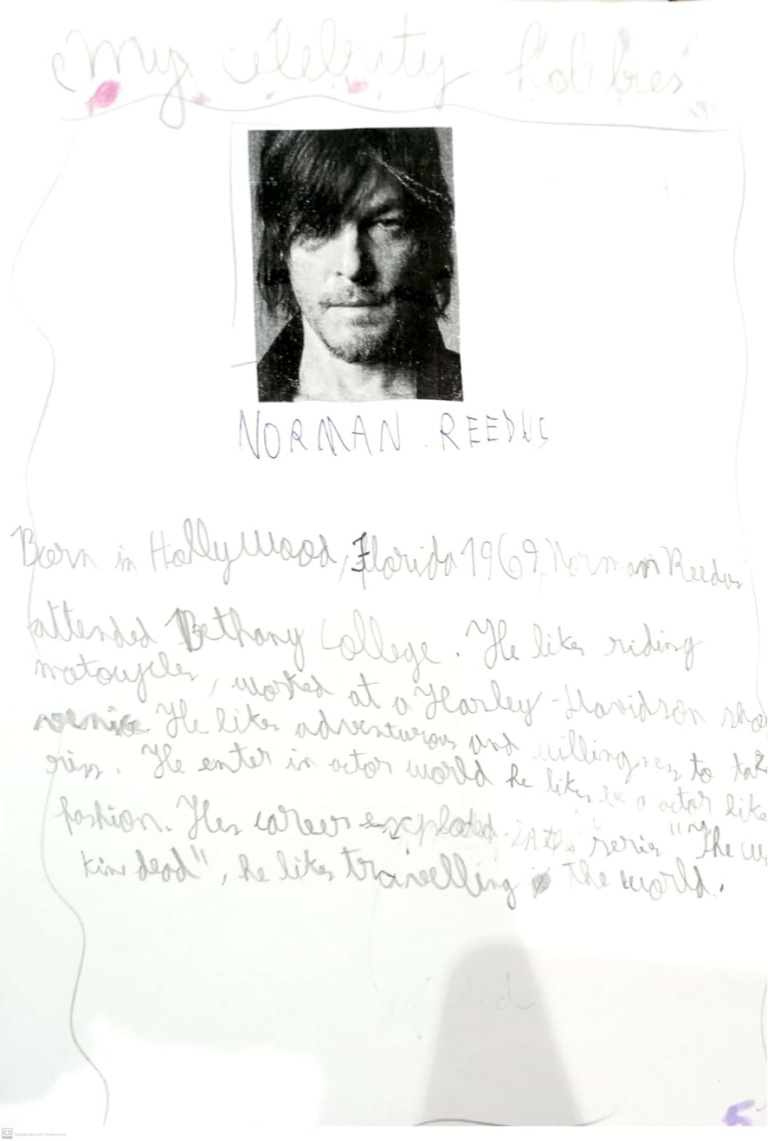 My celebrity hobbies
NORMAN . REEDUS
Born in Hollywood, Florida 1969, Norman Reedus
attended Bethany College . He likes riding
motocycles , worked at a Harley-Davidson sho
He likes adventurous and willingness to tak
. He enter in actor world he likes be a actor like
fashion. Her career exploted in the series "The wa
kin dead", he likes travelling the world.
5